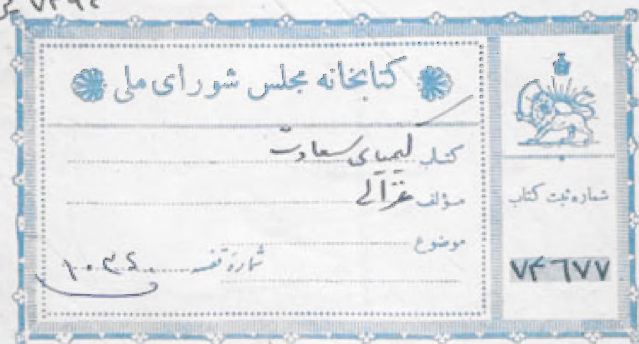 کتابخانه مجلس شورای ملی
کتاب کیمیای سعادت
مؤلف غزالی
موضوع
شماره قفسه
شماره ثبت کتاب
۷۴۶۷۷